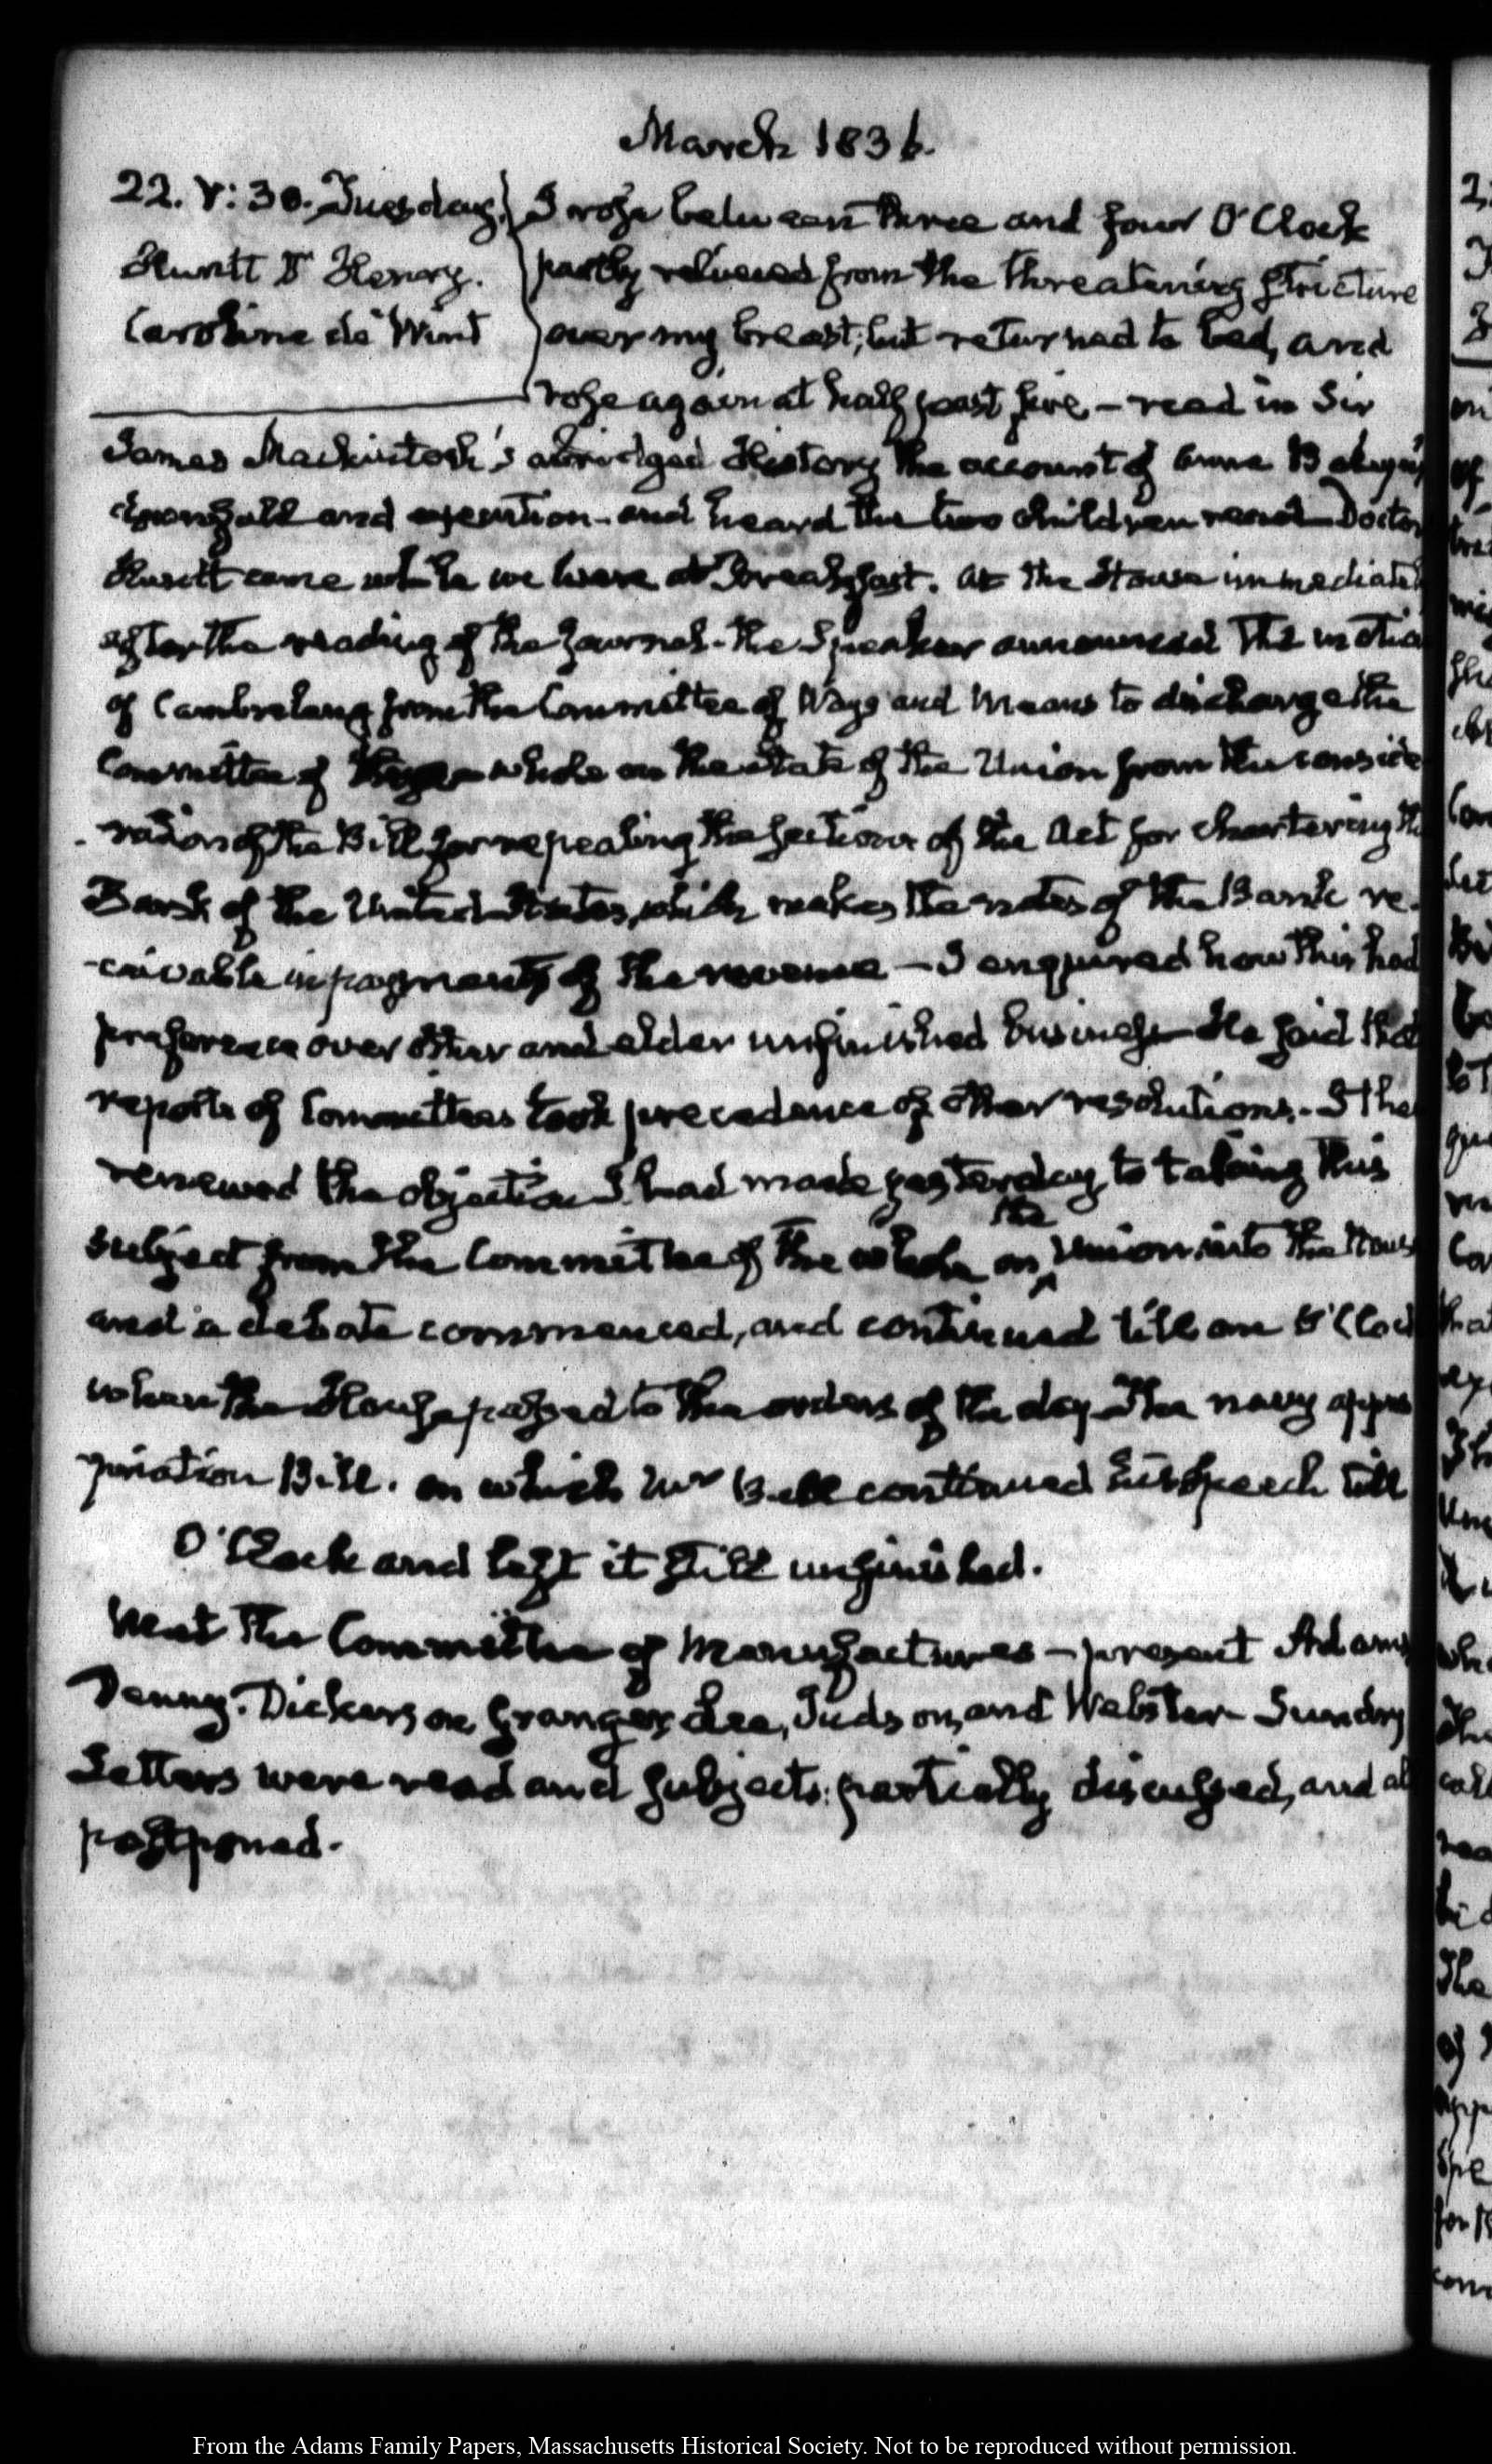 March 1836.
22. V:30. Tuesday.
Huntt Dr Henry.
Caroline de Wint
I rose between three and four O'Clock
partly relieved from the threatening stricture
over my breast; but returned to bed, and
rose again at half past five — read in Sir
James Mackintosh's abridged History the account of Anne Boleyn's
downfall and execution — and heard the two children read Doctor
Huntt came while we were at Breakfast. At the House immediatel
after the reading of the Journal — the Speaker announced the motio
of Cambreleng from the Committee of Ways and Means to discharge the
Committee of the whole on the State of the Union from the conside
-ration of the Bill for repealing the section of the Act for chartering th
Bank of the United States, which makes the notes of the Bank re-
-ceivable in payments of the revenue — I enquired how this had
preference over other and elder unfinished business He said that
reports of Committees took precedence of other resolutions. I the
renewed the objection I had made yesterday to taking this
subject from the Committee of the whole on the Union, into the Hous
and a debate commenced, and continued till one O'Cloc
when the House passed to the orders of the day The navy appro
priation Bill. on which Mr Bell continued his speech till
O'Clock and left it still unfinished.
Meet The Committee of Manufactures — present Adams
Denny. Dickerson, Granger, Lee, Judson, and Webster Sundry
Letters were read and subjects partially discussed, and al
postponed.
From the Adams Family Papers, Massachusetts Historical Society. Not to be reproduced without permission.